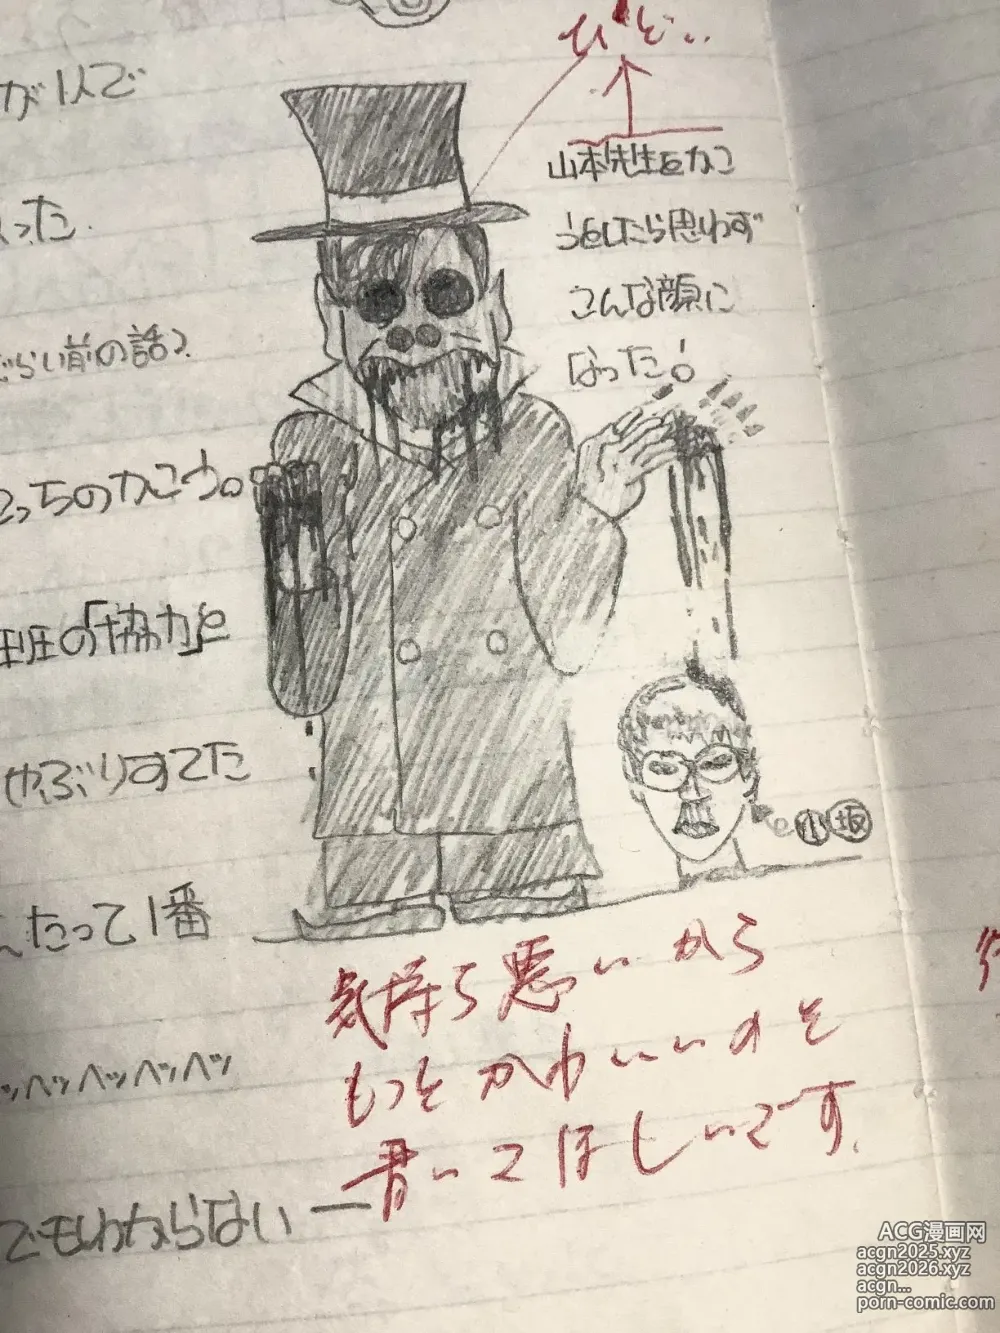 が1人で
った.
ぐらい前の話).
こっちのかこう。
班の「協力」を
やぶりすてた
たって1番
ッヘッヘッヘッヘッ
でもわからない ー
ひどい..
山本先生をかこ
うとしたら思わず
こんな顔に
なった!
小坂
気持ち悪いから
もっとかわいいのを
書いてほしいです.
ACG漫画网
acgn2025.xyz
acgn2026.xyz
acgn...
porn-comic.com